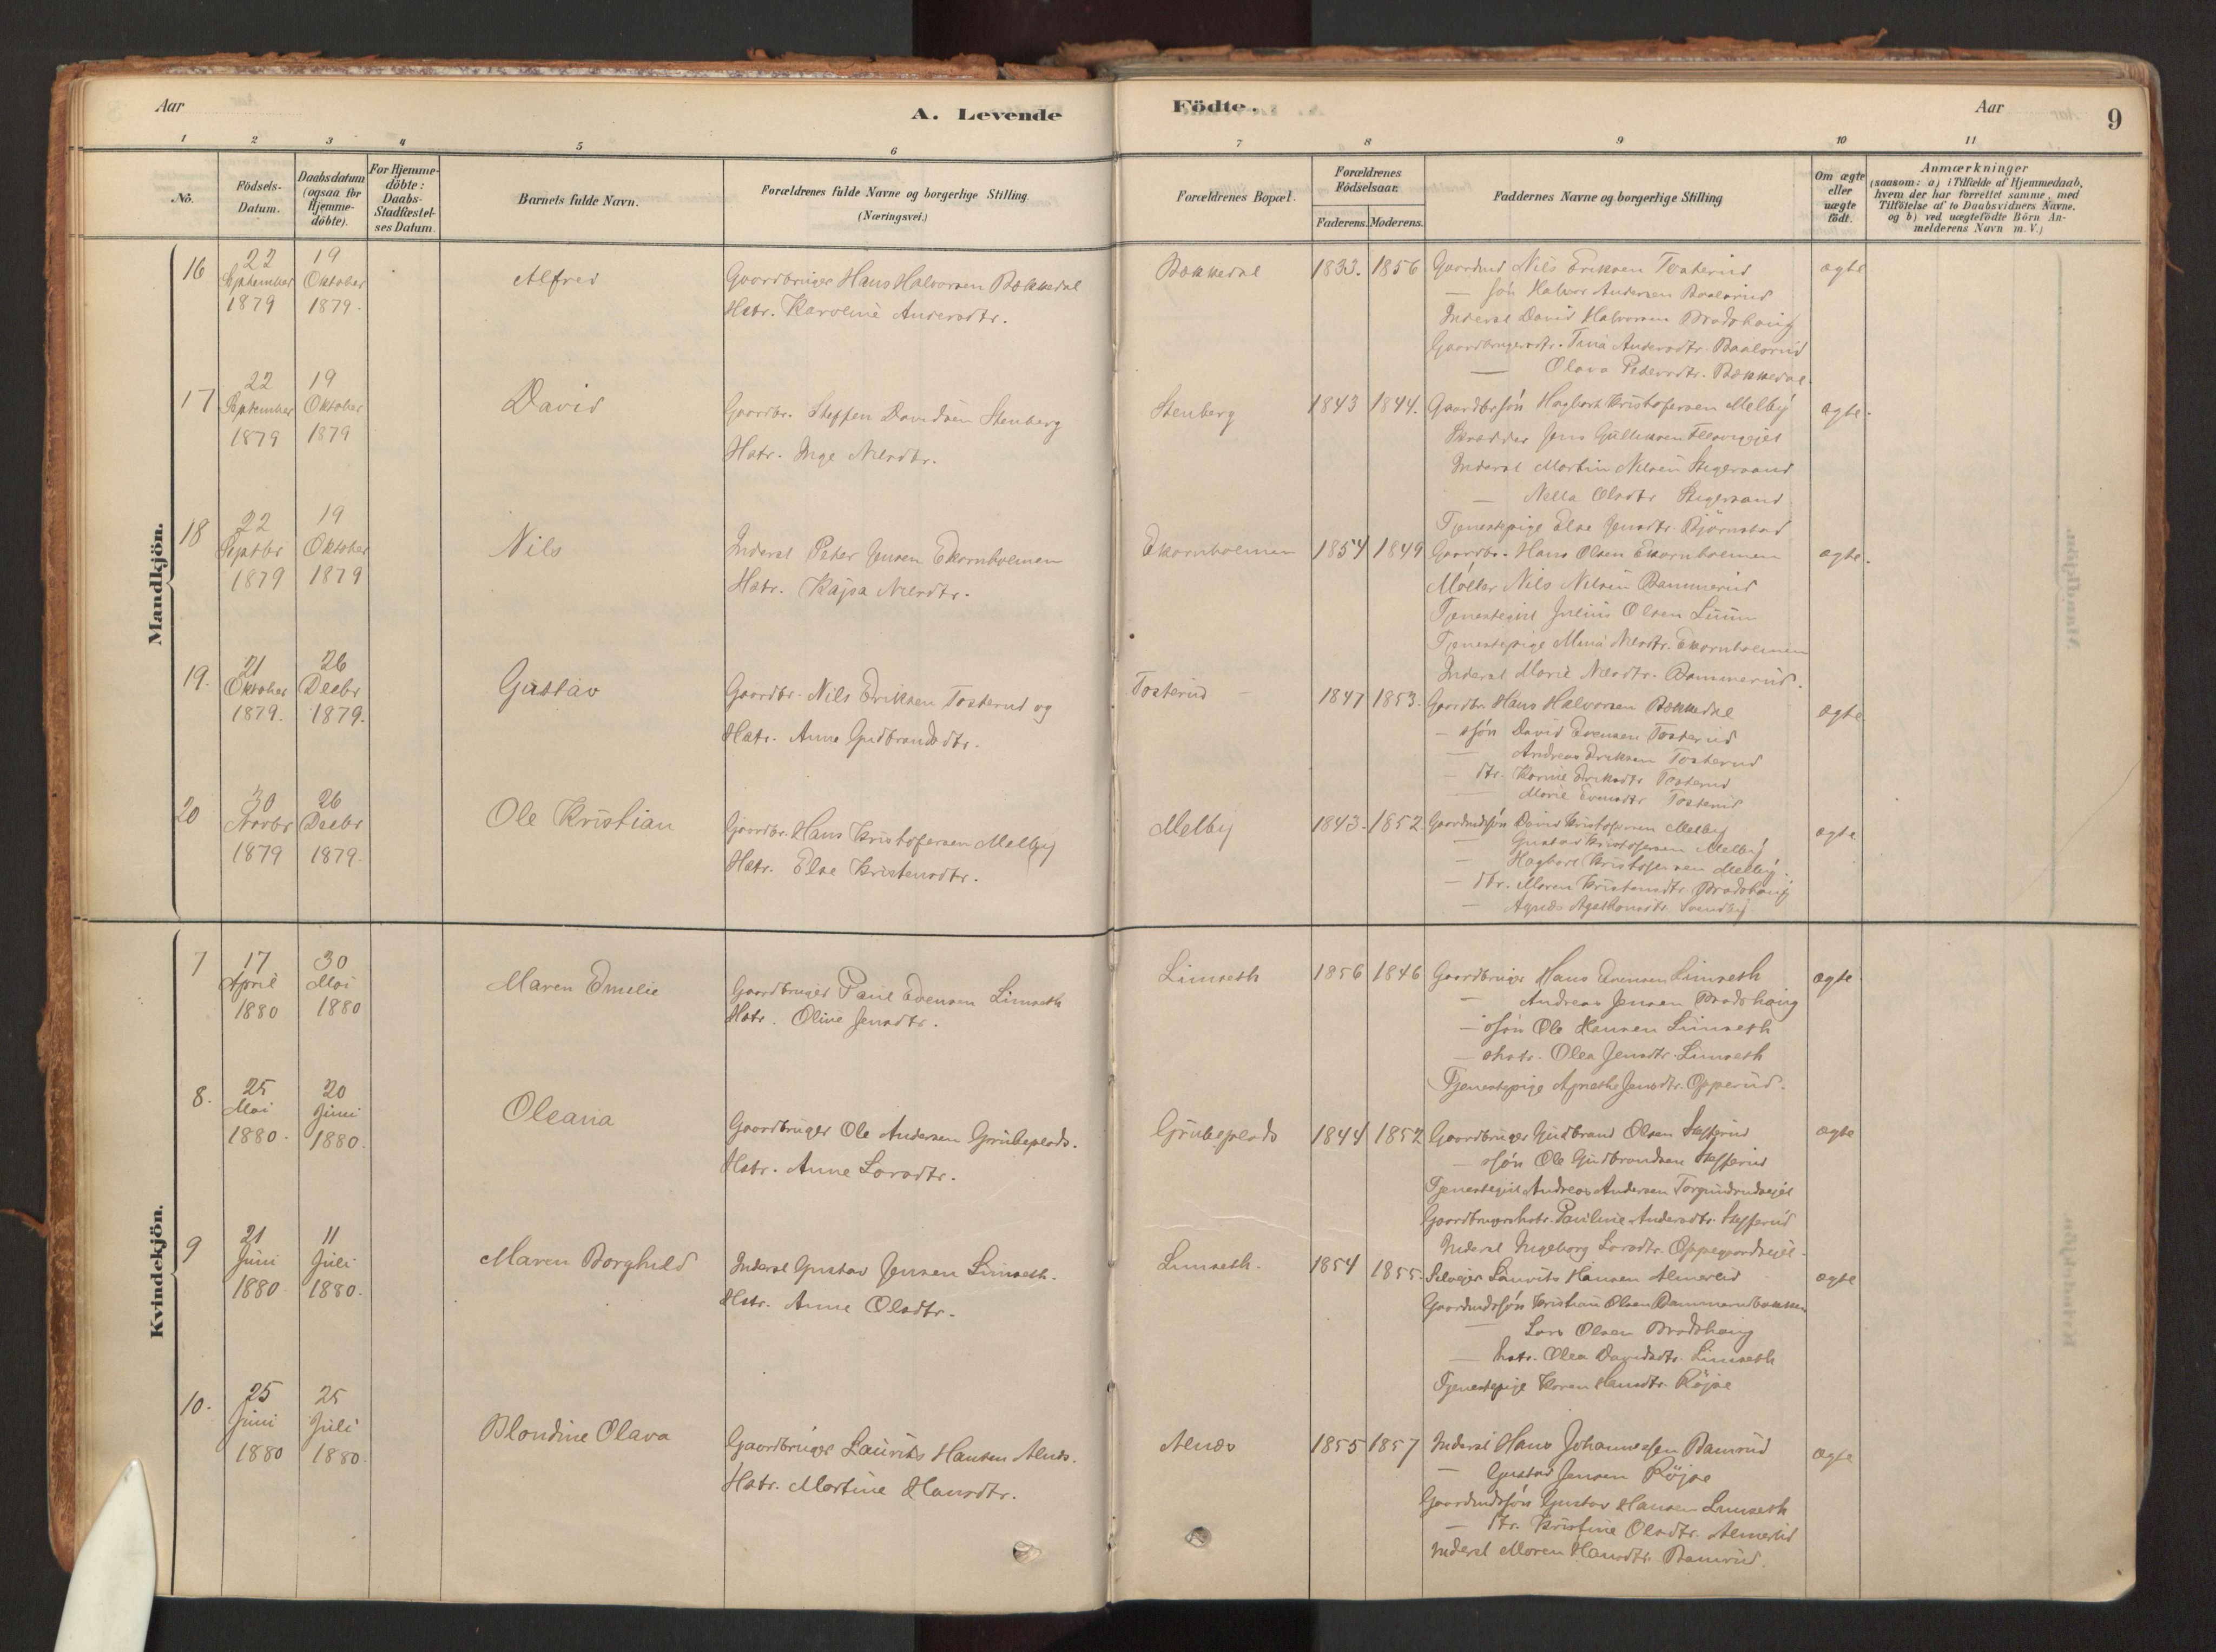 Aar
A. Levende
Födte.
Aar
9
1 2 3 4 5 6 7 8 9 10 11
No.
Födsels-
Datum.
Daabsdatum
(ogsaa for
Hjemme-
döbte).
For Hjemme-
döbte:
Daabs-
Stadfæstel-
ses Datum.
Barnets fulde Navn.
Forældrenes fulde Navne og borgerlige Stilling
(Næringsvei.)
Forældrenes Bopæl.
Forældrenes
Födselsaar.
Faderens. Moderens.
Faddernes Navne og borgerlige Stilling
Om ægte
eller
uægte
födt.
Anmærkninger
(saasom: a) i Tilfælde af Hjemmedaab,
hvem der har forrettet samme, med
Tilföielse af to Daabsvidners Navne.
og b) ved uægtefödte Börn An-
melderens Navn m. V.)
Mandkjön.
16
22
September
1879
19
Oktober
1879.
Alfred
Gaardbruger Hans Halvorsen Bækkedal
Hstr. Karoline Andersdtr.
Bækkedal
1833. 1856
Gaardmd Nils Eriksen Tosterud
— sön Halvor Andersen Baalsrud
Inderst David Halvorsen Bradshaug
Gaardbrugersdtr. Tina Andersdtr. Baalsrud
— Olava Petersdtr. Bækkedal.
ægte
17
22
September
1879
19
Oktober
1879
David
Gaardbr. Steffen Davidsen Stenberg
Hstr. Inge Nilsdtr.
Stenberg
1843 1844.
Gaardbrsön Hagbart Kristofersen Melby
Skrædder Jens Gulliksen
Inderst Martin Nilsen Stegersand
— Nella Olsdtr Stegersand.
Tjenestepige Else Jensdtr. Björnstad
ægte.
18
22
Septbr
1879
19
Oktober
1879
Nils
Inderst Peter Jensen Ekornholmen
Hstr. Kajsa Nilsdtr.
Ekornholmen
1854 1849
Gaardbr. Hans Olsen Ekornholmen
Möller Nils Nilsen Bammerud
Tjenestegut Julius Olsen Luun
Tjenestepige Mina Nilsdtr. Ekornholmen
Inderst Marie Nilsdtr. Bammerud.
ægte.
19.
21
Oktober
1879.
26
Decbr
1879.
Gustav
Gaardbr. Nils Eriksen Tosterud og
Hstr. Anne Gudbrandsdtr.
Tosterud
1847 1853.
Gaardbr. Hans Halvorsen Bækkedal
— ssön David Evensen Tosterud
— Andreas Eriksen Tosterud
— dtr. Karine Eriksdtr Tosterud
— Marie Evensdtr Tosterud
ægte
20
30
Novbr
1879
26
Decbr
1879.
Ole Kristian
Gaardbr. Hans Kristofersen Melby
Hstr. Else Kristensdtr.
Melby
1843. 1852.
Gaardmdssön David Kristofersen Melby
— Gustav Kristofersen Melby
— Hagbart Kristofersen Melby.
— dtr. Maren Kristensdtr. Bradshaug
— Agnes
ægte
Kvindekjön.
7
17
April
1880
30
Mai
1880
Maren Emilie
Gaardbruger Paul Evensen Limseth
Hstr. Oline Jensdtr.
Limseth
1856 1846
Gaardbruger Hans Evensen Limseth
— Andreas Jensen Bradshaug
— ssön Ole Hansen Limseth
— shstr. Olea Jensdtr. Limseth
Tjenestepige Agnethe Jensdtr. Opperud.
ægte
8.
25
Mai
1880.
20
Juni
1880.
Oleana
Gaardbruger Ole Andersen Grubeplads.
Hstr. Anne Larsdtr.
Grubeplads
1844 1852
Gaardbruger Gudbrand Olsen
— ssön Ole Gudbrandsen
Tjenestegut Andreas Andersen Torgundrudseiet
Gaardbrugershstr. Pauline Andersdtr.
Inderst Ingeborg Larsdtr. Oppegaardseiet.
ægte
9
21
Juni
1880
11
Juli
1880.
Maren Borghild
Inderst Gustav Jensen Limseth.
Hstr. Anne Olsdtr.
Limseth.
1854 1855.
Selveier Laurits Hansen Almerud
Gaardmdssön Kristian Olsen
— Lars Olsen Bradshaug
— hstr. Olea Davidsdtr. Limseth
Tjenestepige Karen Hansdtr. Röjse
ægte
10.
25
Juni
1880
25
Juli
1880.
Blondine Olava
Gaardbruger Laurits Hansen Alnæs.
Hstr. Martine Hansdtr.
Alnæs
1855 1857
Inderst Hans Johannessen Bamrud
— Gustav Jensen Röjse
Gaardmdssön Gustav Hansen Limseth
— dtr. Kristine Olsdtr. Almerud
Inderst Maren Hansdtr. Bamrud.
ægte